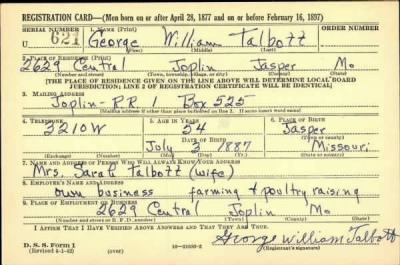 REGISTRATION CARD—(Men born on or after April 28, 1877 and on or before February 16, 1897)
SERIAL NUMBER 1. NAME (Print) ORDER NUMBER
U 621 George William Talbott
(First) (Middle) (Last)
2. PLACE OF RESIDENCE (Print)
2629 Central Joplin Jasper Mo
(Number and street) (Town, township, village, or city) (County) (State)
[THE PLACE OF RESIDENCE GIVEN ON THE LINE ABOVE WILL DETERMINE LOCAL BOARD
JURISDICTION; LINE 2 OF REGISTRATION CERTIFICATE WILL BE IDENTICAL]
3. MAILING ADDRESS
Joplin - R.R. Box 525
[Mailing address if other than place indicated on line 2. If same insert word same]
4. TELEPHONE 5. AGE IN YEARS 6. PLACE OF BIRTH
3210W 54 Jasper
DATE OF BIRTH (Town or county)
July 3 1887 Missouri
(Exchange) (Number) (Mo.) (Day) (Yr.) (State or country)
7. NAME AND ADDRESS OF PERSON WHO WILL ALWAYS KNOW YOUR ADDRESS
Mrs. Sarah Talbott (wife)
8. EMPLOYER'S NAME AND ADDRESS
own business farming & poultry raising
9. PLACE OF EMPLOYMENT OR BUSINESS
2629 Central Joplin Mo
(Number and street or R. F. D. number) (Town) (County) (State)
I AFFIRM THAT I HAVE VERIFIED ABOVE ANSWERS AND THAT THEY ARE TRUE.
D. S. S. Form 1
(Revised 4-1-42) (over) George William Talbott
(Registrant's signature)